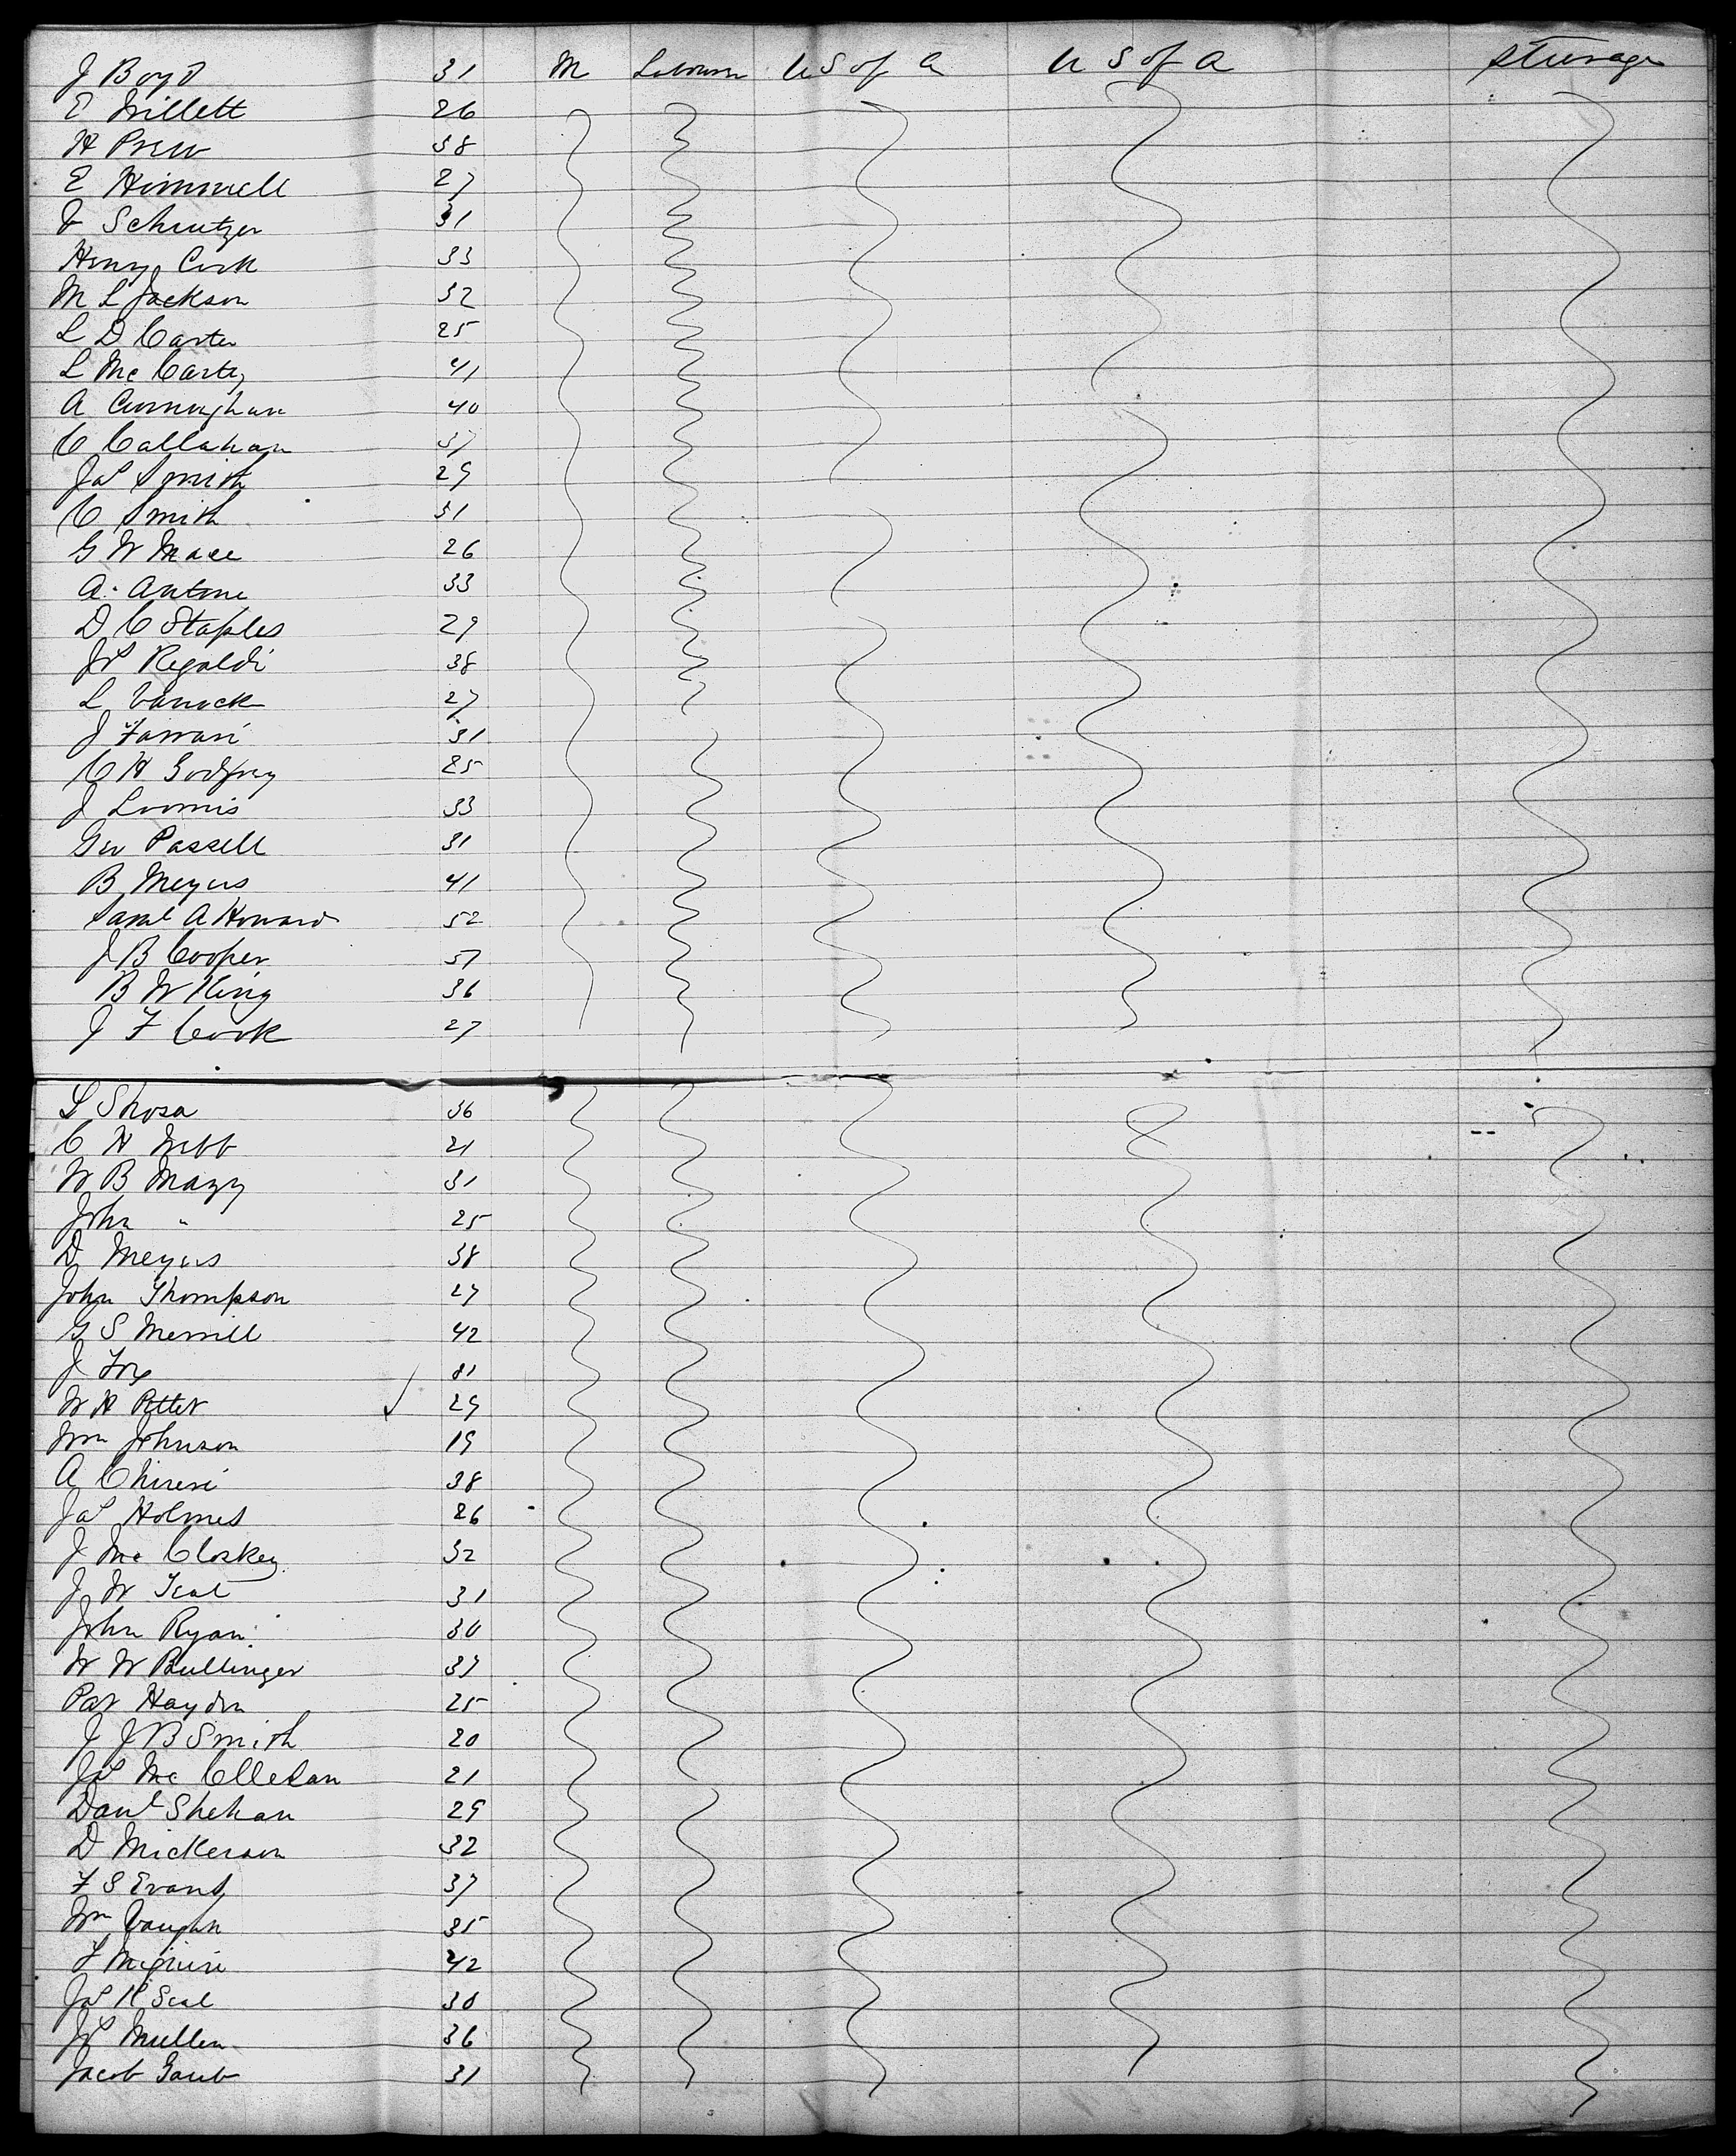 J Boyd 31 M Labourer U S of A U S of A steerage
E Millett 26
H Prew 38
E Himmell 27
F Schrutzer 31
Henry Cook 33
M L Jackson 32
L D Carter 25
L Mc Carty 41
A Cunningham 40
C Callahan 37
Jas Smith 29
C Smith 31
G W Mace 26
A. Antone 33
D C Staples 29
Js Regaldi 38
L Varrick 27
J Farrari 31
C H Godfrey 25
J Loomis 33
Geo Passell 31
B Meyers 41
Saml A Howard 52
J B Cooper 57
B W King 36
J F Cook 27
L Shosa 36
C H Webb 21
W B Mazy 31
John " 25
D Meyers 38
John Thompson 27
G S Merrill 42
J Fox 31
W H Potter 29
Wm Johnson 19
A Chireri 38
Jas Holmes 26
J Mc Closkey 32
J W Teal 31
John Ryan 30
W W Bullinger 37
Pat Haydon 25
J J B Smith 20
Js Mc Clellan 21
Danl Shehan 29
D Nickerson 32
F S Evans 37
Wm Vaughn 35
F Mcguire 42
Js R Seal 30
Js Mullen 36
Jacob Gaub 31